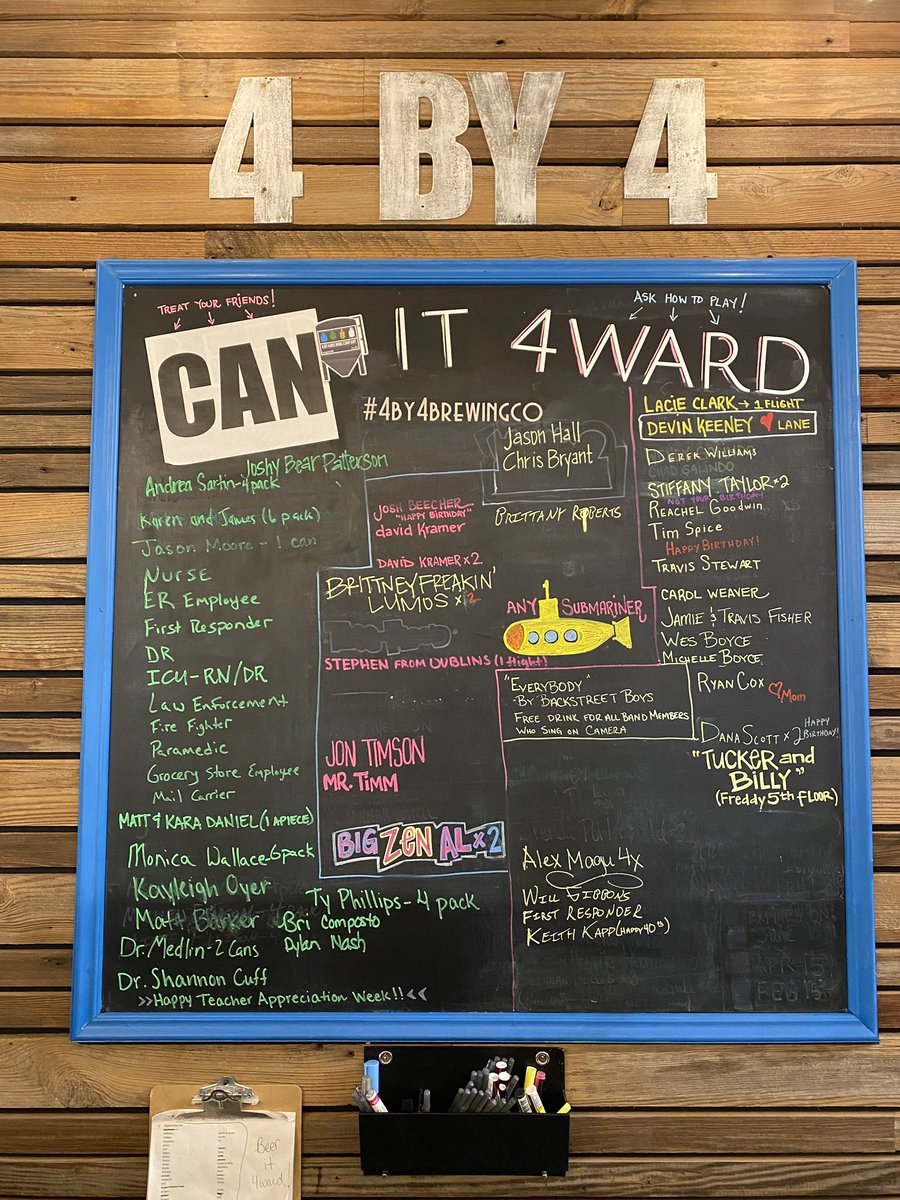 4 BY 4
TREAT YOUR FRIENDS!
ASK HOW TO PLAY!
CAN IT 4WARD
#4BY4BREWINGCO
Joshy Bear Patterson
Andrea Sartin-4pack
Karen and James (6 pack)
Jason Moore - 1 can
Nurse
ER Employee
First Responder
DR
ICU-RN/DR
Law Enforcement
Fire Fighter
Paramedic
Grocery Store Employee
Mail Carrier
MATT & KARA DANIEL (1 APIECE)
Monica Wallace-6pack
Kayleigh Oyer
Matt Barker
Dr. Medlin-2 Cans
Dr. Shannon Cuff
>>Happy Teacher Appreciation Week!!<<
Ty Phillips-4 pack
Bri Composto
Dylan Nash
Jason Hall
Chris Bryant
JOSH BEECHER
"HAPPY BIRTHDAY"
david Kramer
BRITTANY ROBERTS
DAVID KRAMER x2
BRITTNEY FREAKIN'
LUMOS x 2
ANY SUBMARINER
STEPHEN FROM DUBLINS (1 flight!
"EVERYBODY"
-BY BACKSTREET BOYS
FREE DRINK FOR ALL BAND MEMBERS
WHO SING ON CAMERA
JON TIMSON
MR. TIMM
BIG ZEN AL x2
Alex Magu 4x
WILL GIBBONS
FIRST RESPONDER
KEITH KAPP (HAPPY 40TH)
LACIE CLARK → 1 FLIGHT
DEVIN KEENEY LANE
DEREK WILLIAMS
CHAD GALINDO
STIFFANY TAYLOR x2
NOT YOUR BIRTHDAY
REACHEL GOODWIN
TIM SPICE
HAPPY BIRTHDAY!
TRAVIS STEWART
CAROL WEAVER
JAMIE & TRAVIS FISHER
WES BOYCE
MICHELLE BOYCE
RYAN COX
Mom
DANA SCOTT x 2 HAPPY BIRTHDAY!
"TUCKER and
BILLY"
(Freddy 5th FLOOR)
APR 15
FEB 15
Beer
it
4ward